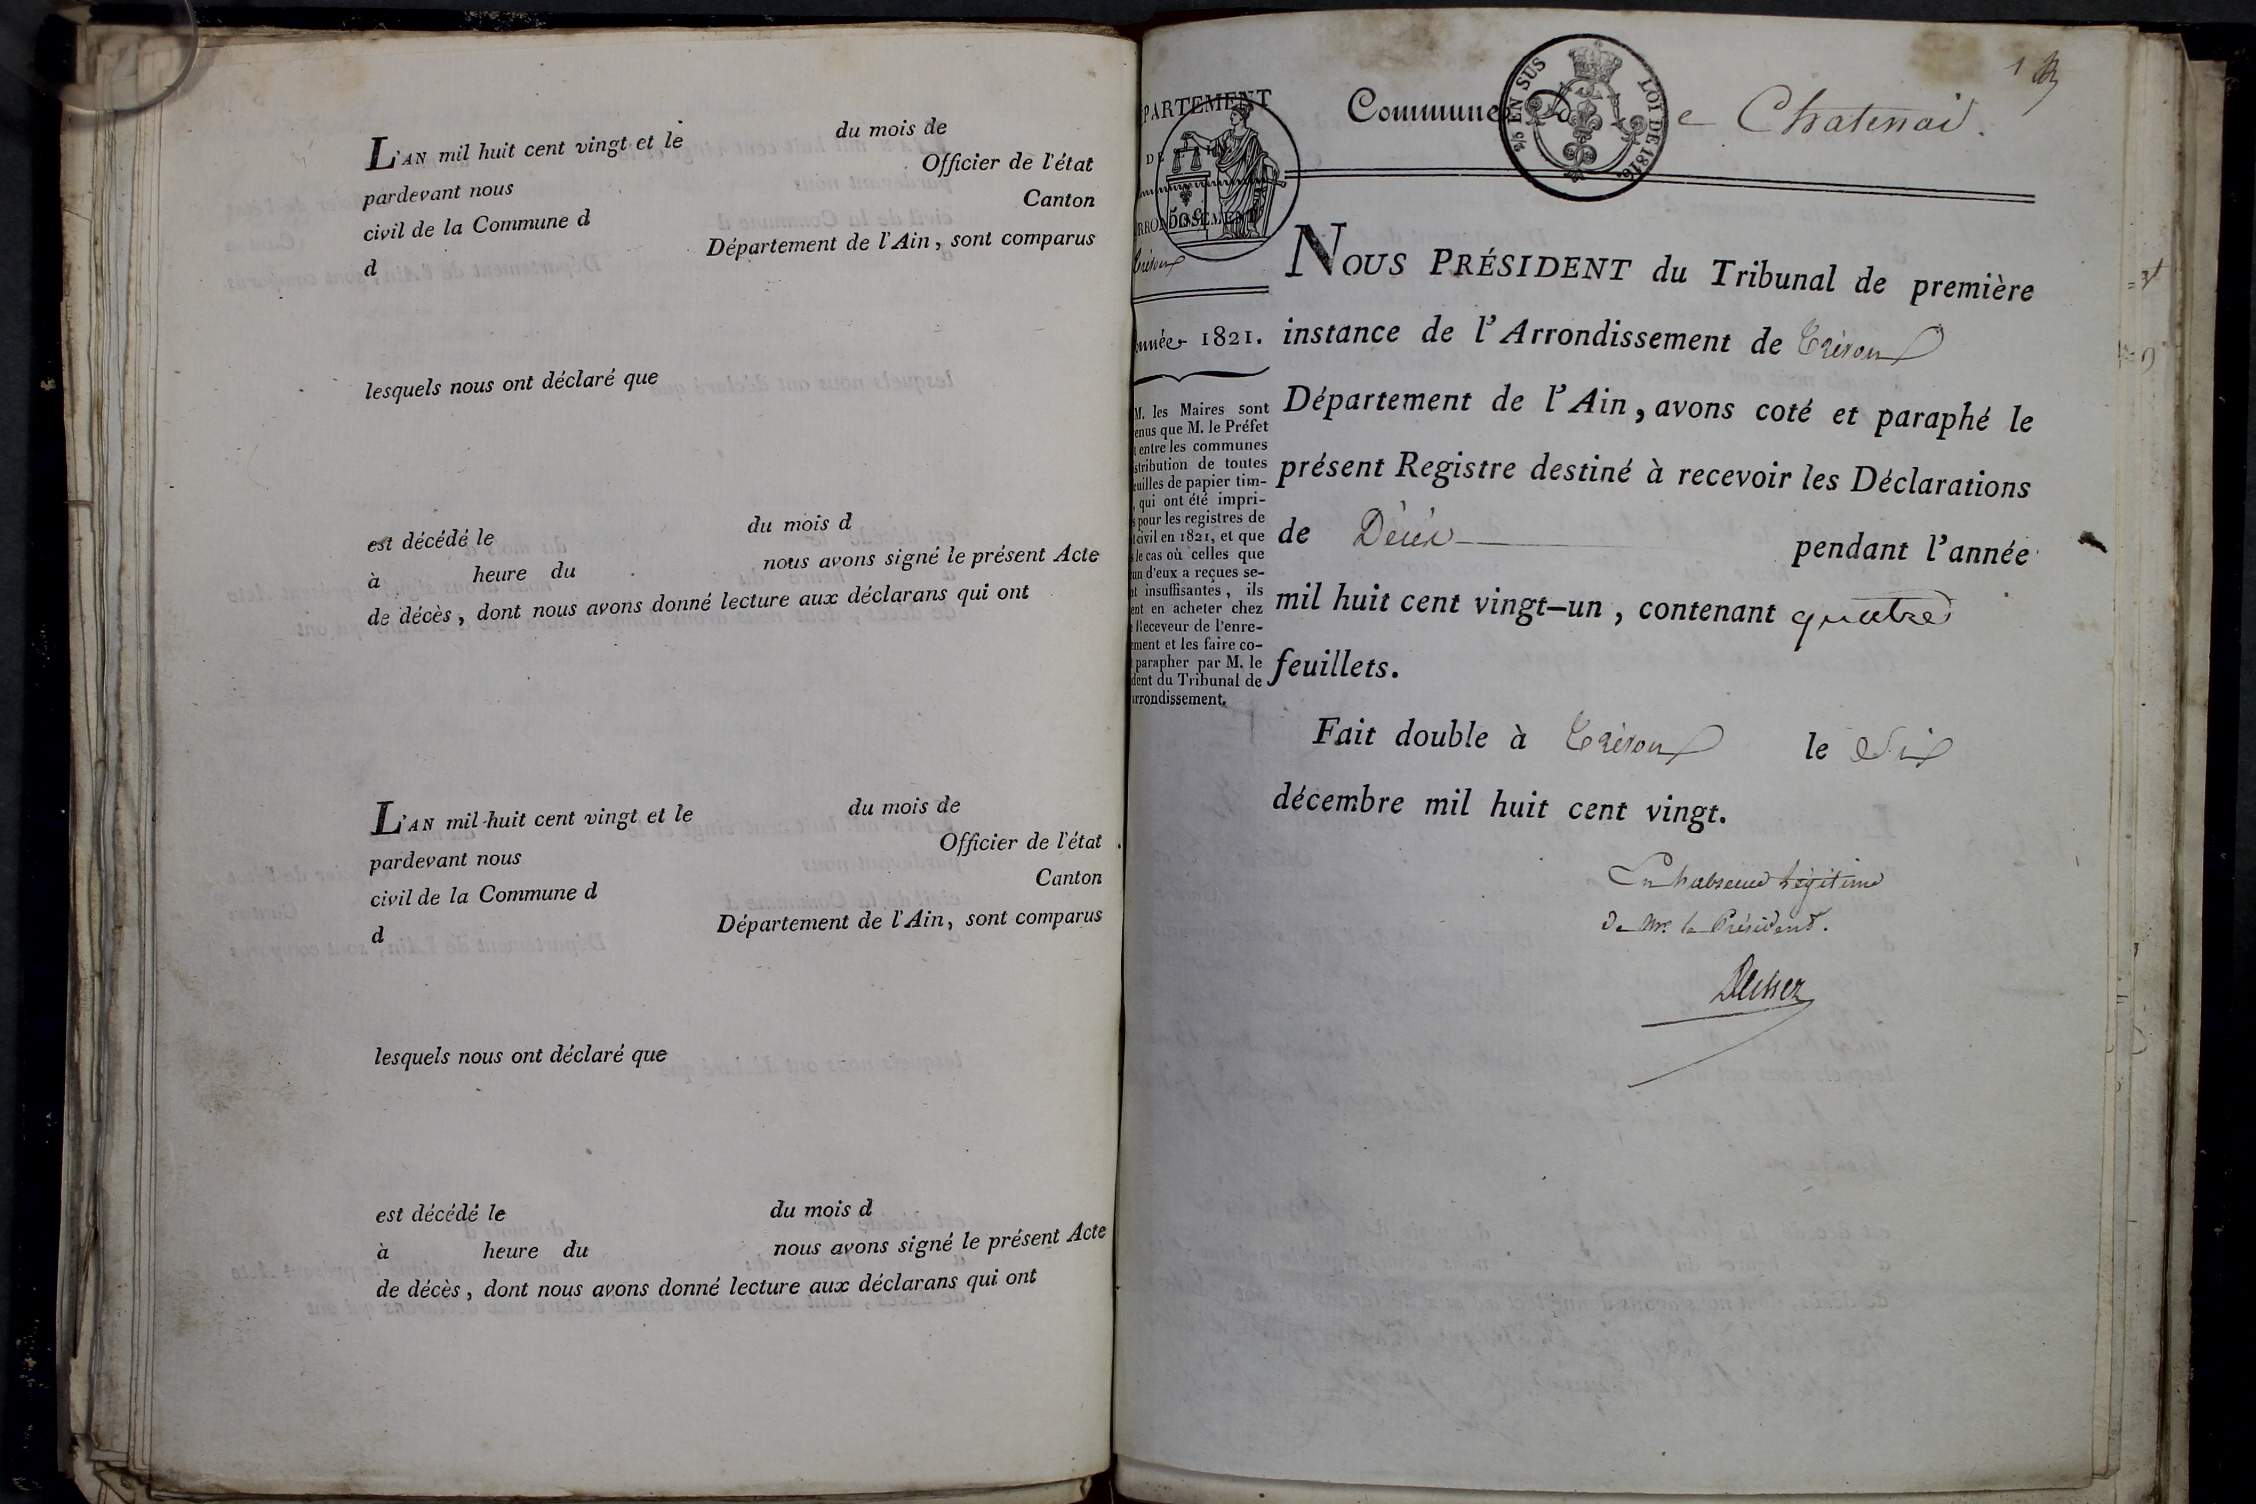 L'AN mil huit cent vingt et le du mois de
pardevant nous Officier de l'état
civil de la Commune d Canton
d Département de l'Ain, sont comparus
lesquels nous ont déclaré que
est décédé le du mois d
à heure du nous avons signé le présent Acte
de décès, dont nous avons donné lecture aux déclarans qui ont
L'AN mil huit cent vingt et le du mois de
pardevant nous Officier de l'état
civil de la Commune d Canton
d Département de l'Ain, sont comparus
lesquels nous ont déclaré que
est décédé le du mois d
à heure du nous avons signé le présent Acte
de décès, dont nous avons donné lecture aux déclarans qui ont
1
PARTEMENT
DE
RRONDISSEMENT
50 C
Trévoux
nnée 1821.
M. les Maires sont
enus que M. le Préfet
t entre les communes
stribution de toutes
euilles de papier tim-
, qui ont été impri-
s pour les registres de
t civil en 1821, et que
s le cas où celles que
un d'eux a reçues se-
nt insuffisantes, ils
ent en acheter chez
e Receveur de l'enre-
ement et les faire co-
parapher par M. le
dent du Tribunal de
rrondissement.
Commune De Chatenai.
EN SUS LOI DE 1816.
NOUS PRÉSIDENT du Tribunal de première
instance de l'Arrondissement de Trévoux
Département de l'Ain, avons coté et paraphé le
présent Registre destiné à recevoir les Déclarations
de Décès pendant l'année
mil huit cent vingt-un, contenant quatre
feuillets.
Fait double à Trévoux le Six
décembre mil huit cent vingt.
En l'absence légitime
de Mr. le Président.